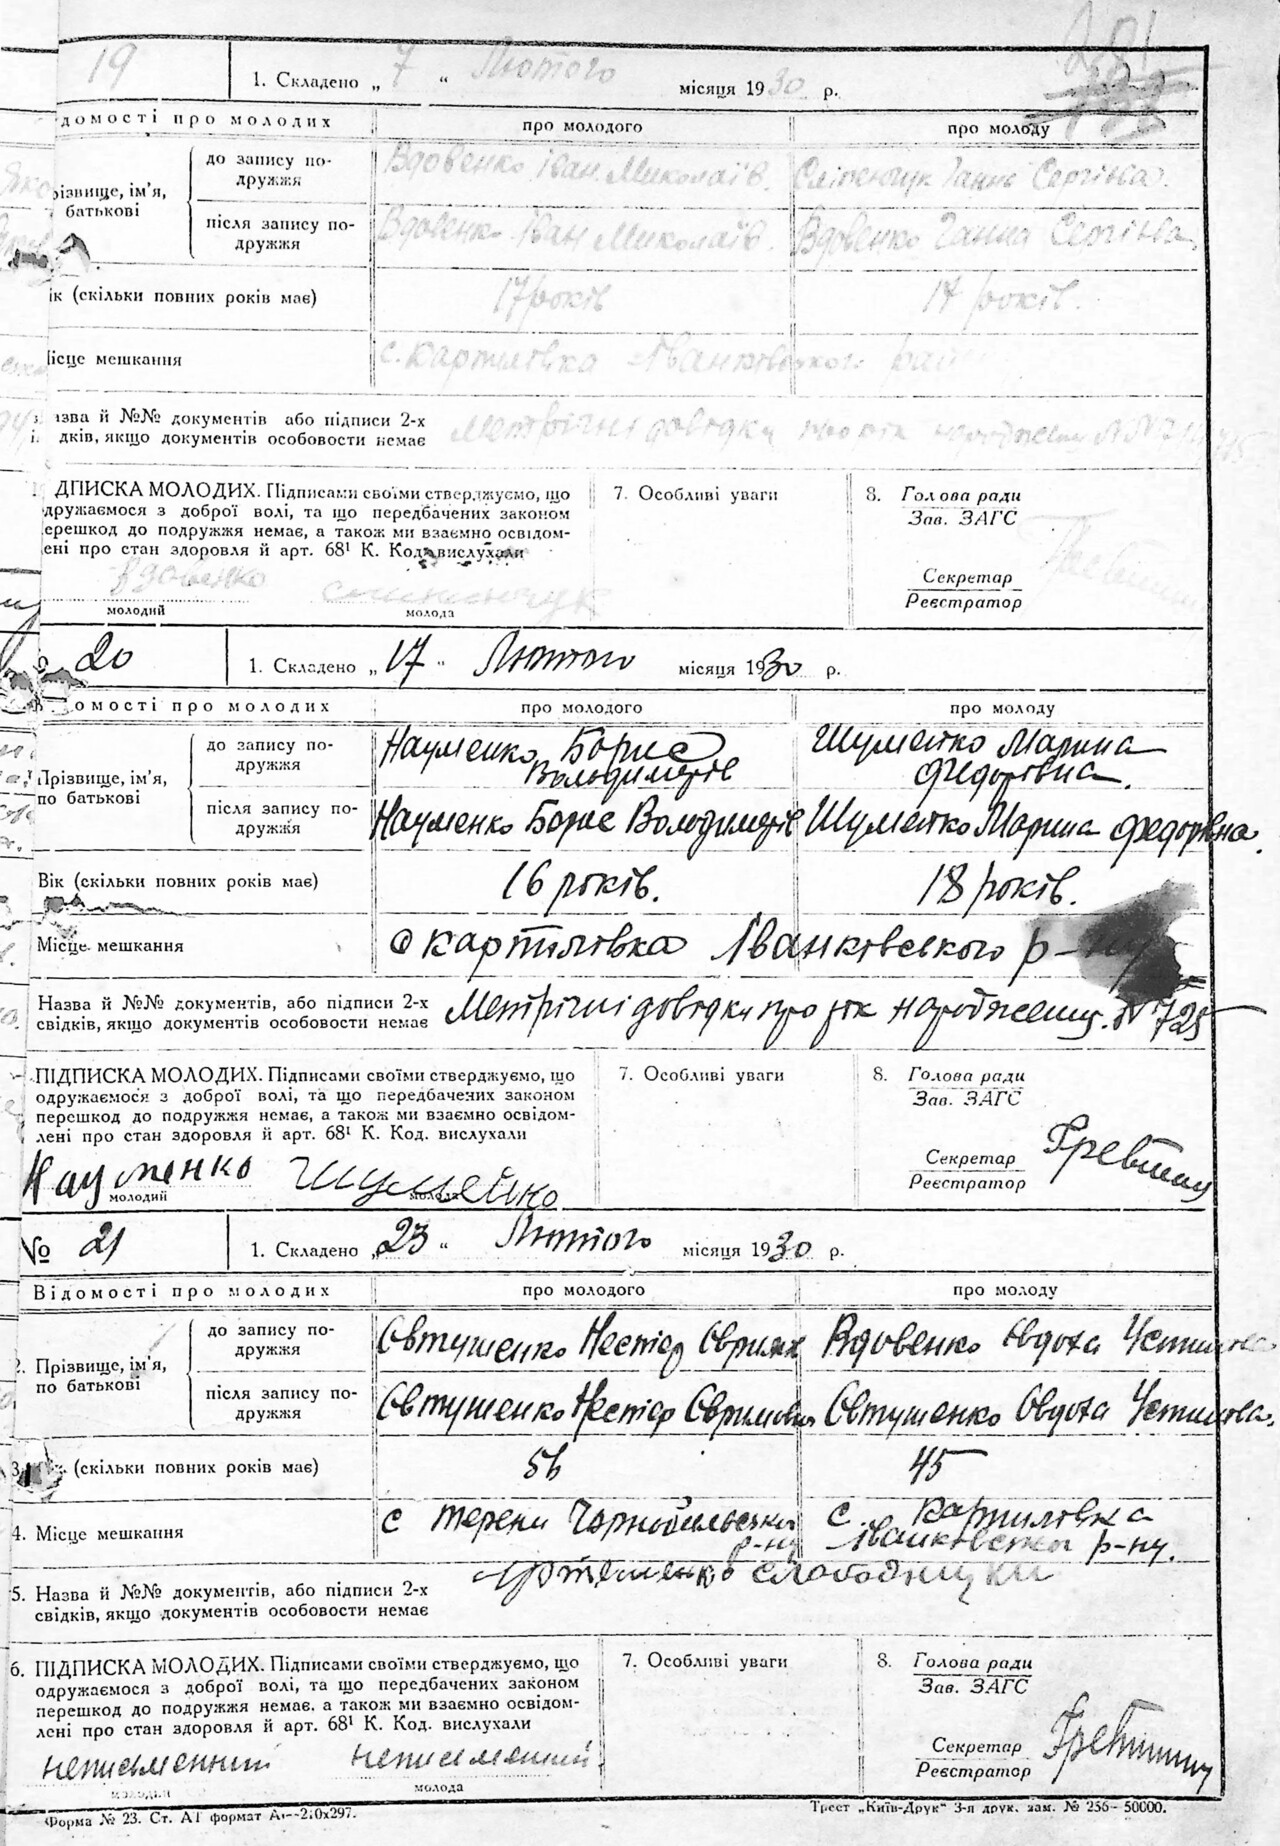 281
19
1. Складено „ 7 “ Лютого місяця 1930 р.
домості про молодих про молодого про молоду
різвище, ім’я, батькові
до запису по-дружжя Вдовенко Іван Миколаїв. Сліпенчук Ганна Сергіївна.
після запису по-дружжя Вдовенко Іван Миколаїв. Вдовенко Ганна Сергіївна
ік (скільки повних років має) 17 років 17 років.
ісце мешкання с. Картиловка Іванківського рай
азва й №№ документів або підписи 2-х Метрічні довідки про рік народження
дків, якщо документів особовости немає
ДПИСКА МОЛОДИХ. Підписами своїми стверджуємо, що 7. Особливі уваги 8. Голова ради
дружаємося з доброї волі, та що передбачених законом Зав. ЗАГС
ерешкод до подружжя немає, а також ми взаємно освідом-
ені про стан здоровля й арт. 68¹ К. Код. вислухали
Вдовенко Секретар
молодий молода Реєстратор
20
1. Складено „ 17 “ Лютого місяця 1930 р.
омості про молодих про молодого про молоду
Прізвище, ім’я, по батькові
до запису по-дружжя Науменко Борис Володимирів Шумейко Марина Федорівна.
після запису по-дружжя Науменко Борис Володимирів Шумейко Марина Федорівна.
Вік (скільки повних років має) 16 років. 18 років.
Місце мешкання с Картиловка Іванківського р-ну
Назва й №№ документів, або підписи 2-х Метрічні довідки про рік народження. N 725
свідків, якщо документів особовости немає
ПІДПИСКА МОЛОДИХ. Підписами своїми стверджуємо, що 7. Особливі уваги 8. Голова ради
одружаємося з доброї волі, та що передбачених законом Зав. ЗАГС
перешкод до подружжя немає, а також ми взаємно освідом-
лені про стан здоровля й арт. 68¹ К. Код. вислухали
Науменко Шумейко Секретар
молодий молода Реєстратор
№ 21
1. Складено „ 23 “ Лютого місяця 1930 р.
Відомості про молодих про молодого про молоду
2. Прізвище, ім’я, по батькові
до запису по-дружжя Євтушенко Нестір Вдовенко Євдоха
після запису по-дружжя Євтушенко Нестір Євтушенко Євдоха
3. (скільки повних років має) 56 45
4. Місце мешкання с Терени Чорнобильськи р-ну с. Картиловка Іванковсько р-ну.
5. Назва й №№ документів, або підписи 2-х
свідків, якщо документів особовости немає
6. ПІДПИСКА МОЛОДИХ. Підписами своїми стверджуємо, що 7. Особливі уваги 8. Голова ради
одружаємося з доброї волі, та що передбачених законом Зав. ЗАГС
перешкод до подружжя немає, а також ми взаємно освідом-
лені про стан здоровля й арт. 68¹ К. Код. вислухали
неписьменний неписьменний. Секретар
молодий молода Реєстратор
Форма № 23. Ст. А1 формат А4—210х297. Трест „Київ-Друк“ 3-я друк. зам. № 256—50000.